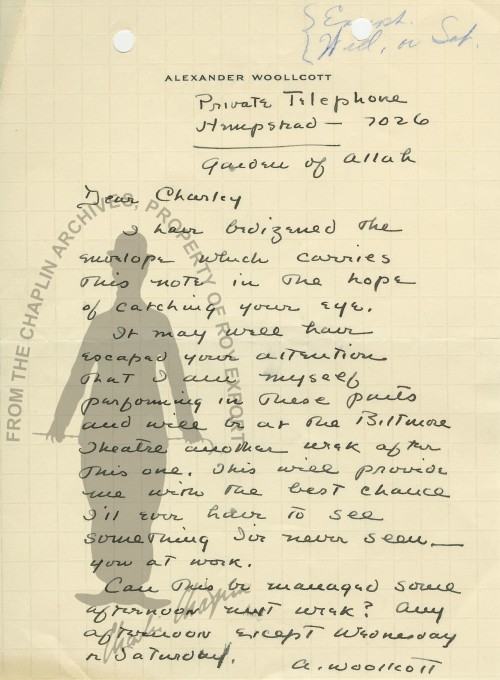 {Except.
{Wed, or Sat.
ALEXANDER WOOLLCOTT
Private Telephone
Hempstead — 7026
Garden of Allah
Dear Charley
I have bedizened the
envelope which carries
this note in the hope
of catching your eye.
It may well have
escaped your attention
that I am myself
performing in these parts
and will be at the Biltmore
Theatre another week after
this one. This will provide
me with the best chance
I'll ever have to see
something I've never seen —
you at work.
Can this be managed some
afternoon next week? Any
afternoon except Wednesday
or Saturday.
A. Woollcott
FROM THE CHAPLIN ARCHIVES, PROPERTY OF ROY EXPORT
Charlie Chaplin